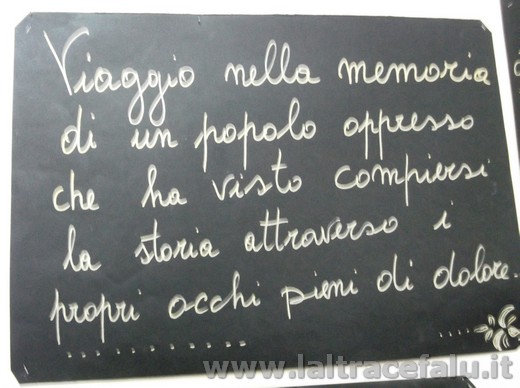 Viaggio nella memoria
di un popolo oppresso
che ha visto compiersi
la storia attraverso i
propri occhi pieni di dolore.
www.laltracefalu.it